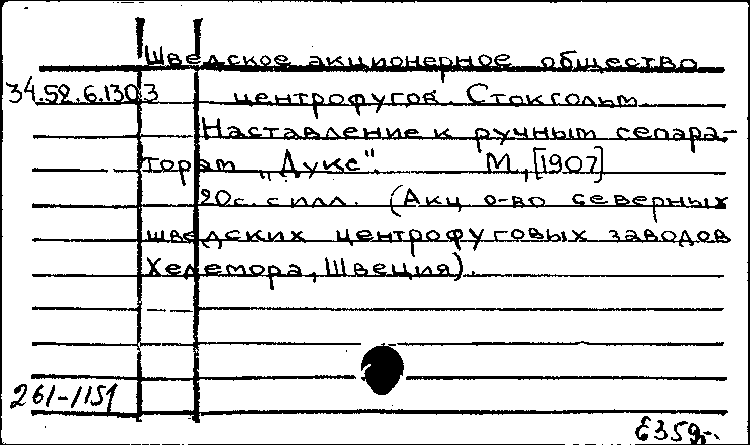 Шведское акционерное общество
34.52.6.1303 центрофугов. Стокгольм
Наставление к ручным сепара-
торам „Дукс". М., [1907]
20с. с илл. (Акц о-во северных
шведских центрофуговых заводов
Хедемора, Швеция).
261-1151